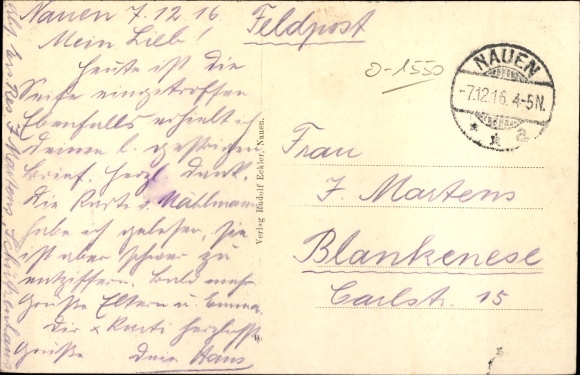 Nauen 7.12.16
Feldpost
Mein Lieb!
Heute ist die
Seife eingetroffen
Ebenfalls erhielt ich
deinen l. gestrigen
Brief. Herzl. Dank.
Die Karte v. Mählmann
habe ich gelesen, sie
ist aber schwer zu
entziffern. Bald mehr
Grüße Eltern u. Emma
Dir x Kurti herzlichst
Grüße Dein Hans
Verlag Rudolf Eckler, Nauen.
0-1550
NAUEN
-7.12.16. 4-5N.
* * a
Frau
J. Martens
Blankenese
Carlstr. 15